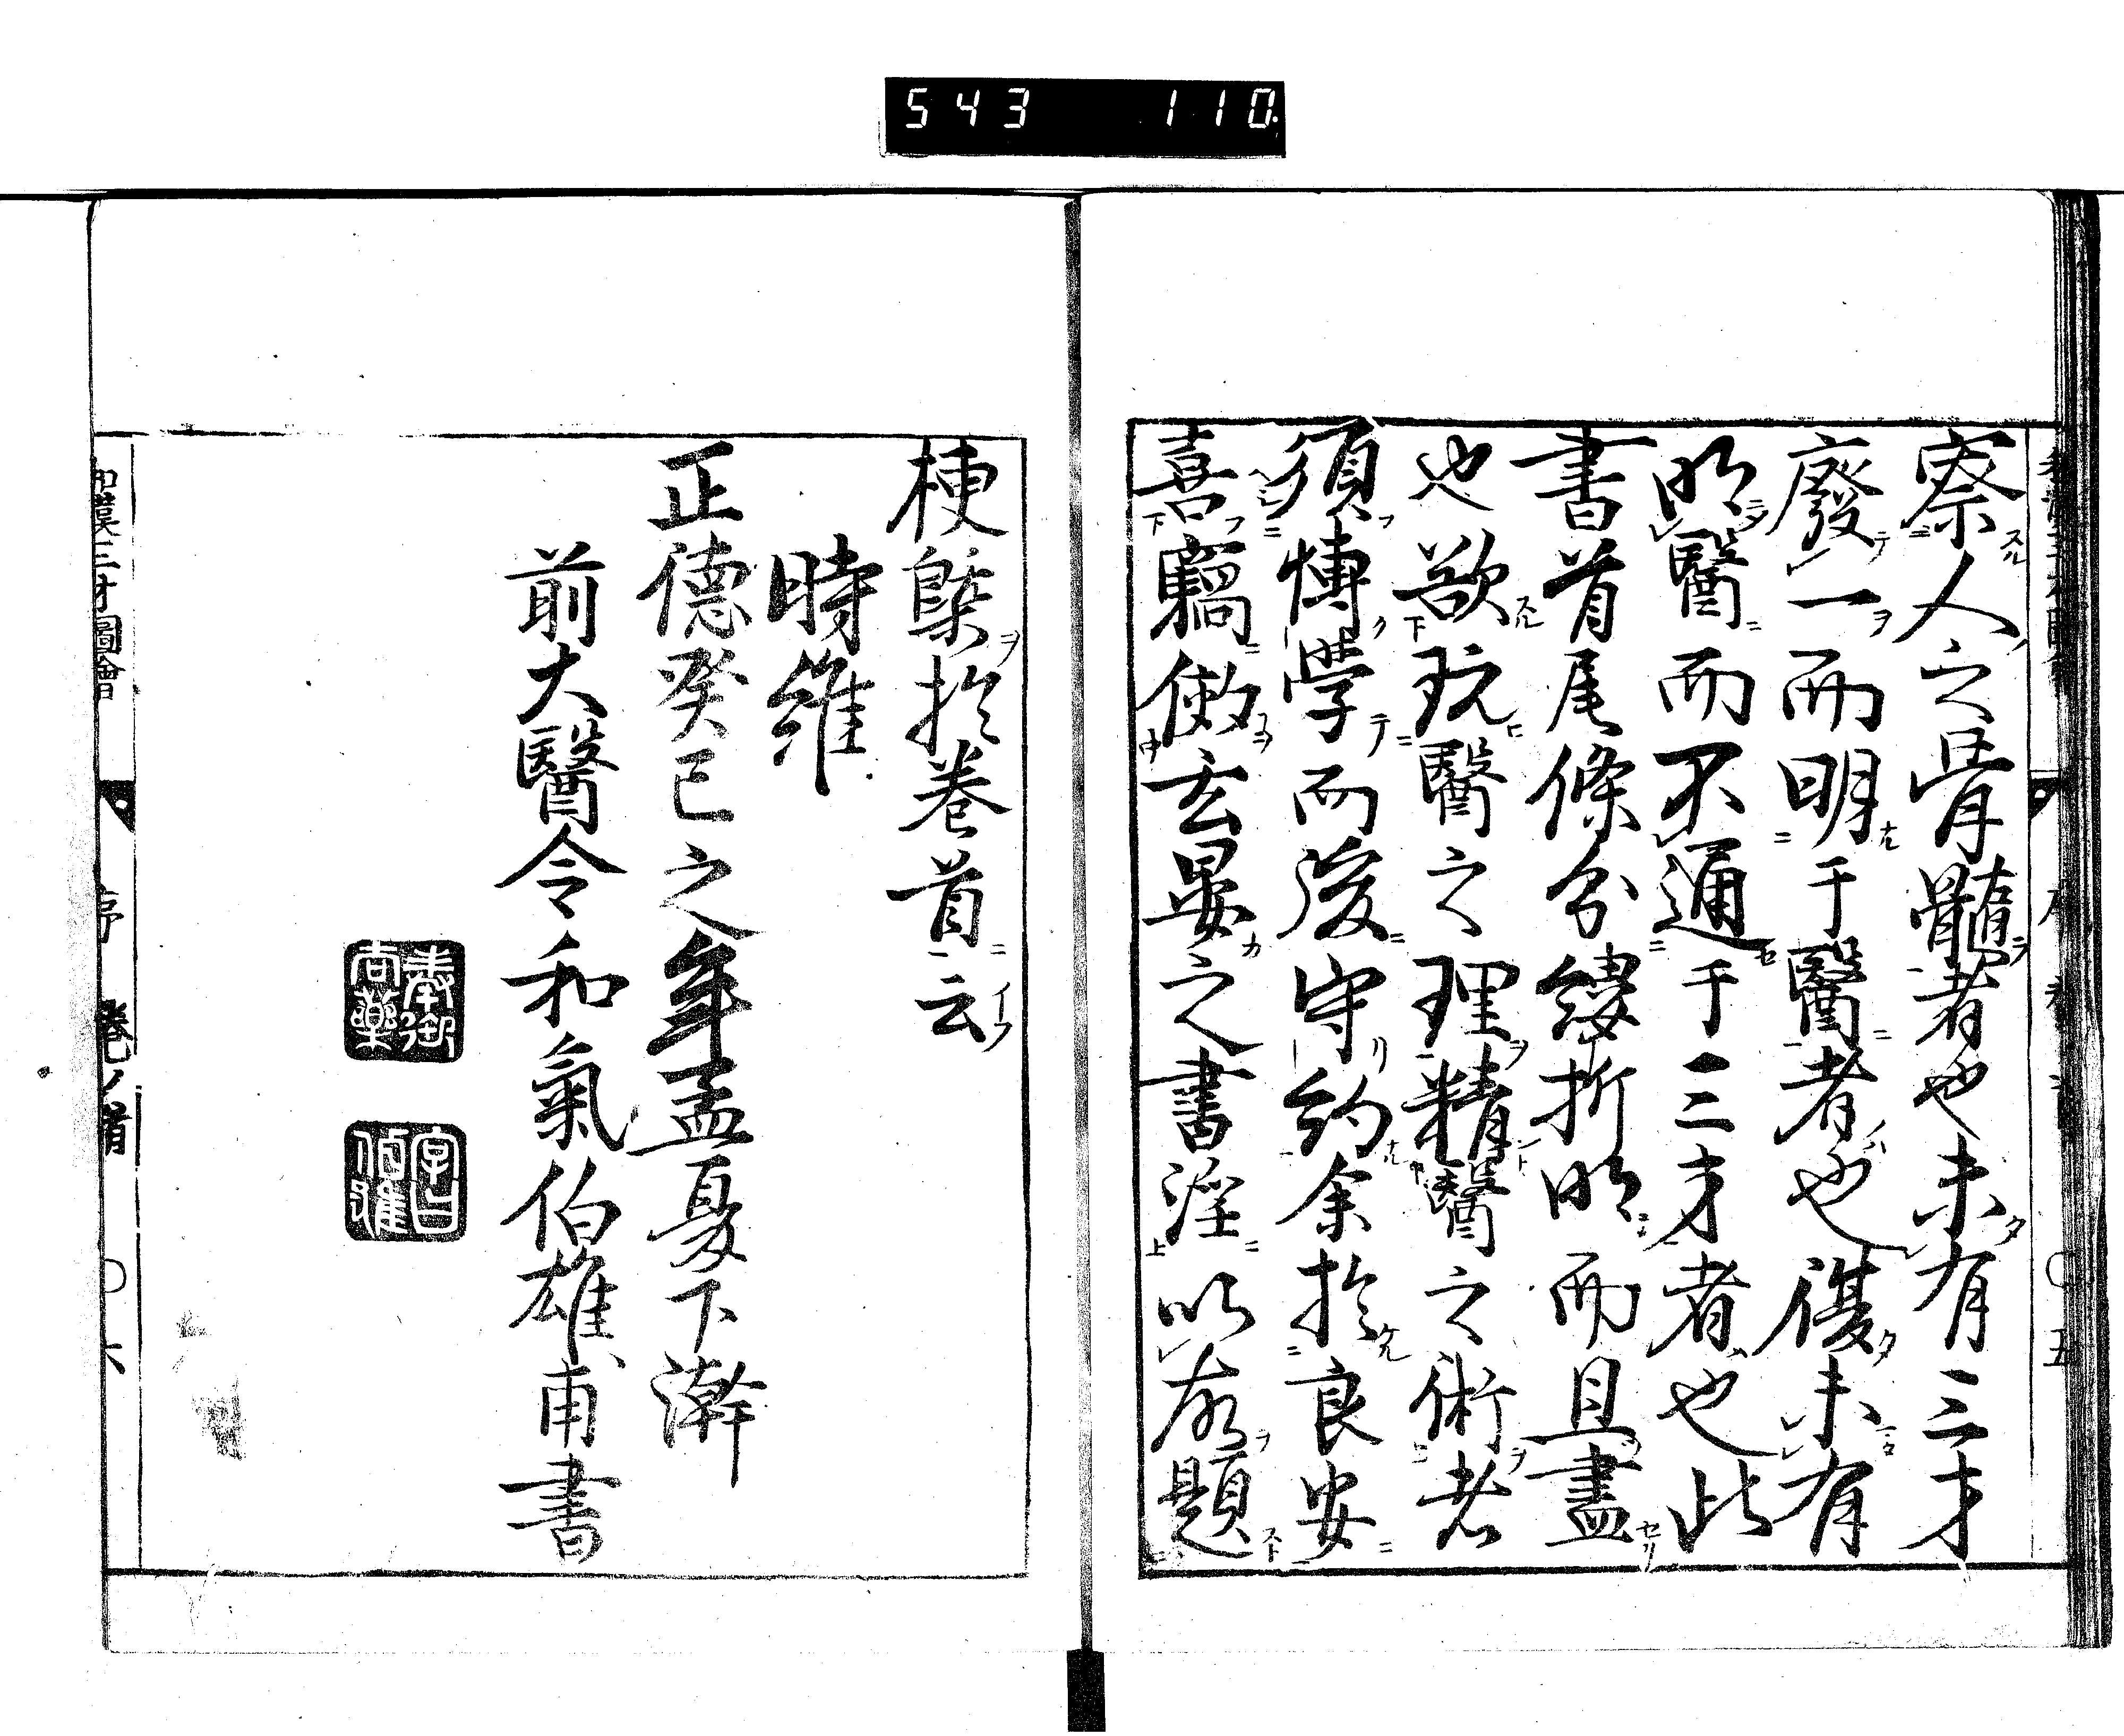 543 110
察人之骨髓者也未有三才
廢一而明于醫者也復未有
明醫而不通于三才者也此
書首尾條分縷折明而且盡
也欲玩醫之理精醫之術者
須博學而後守約余於良安
喜竊倣玄晏之書淫以故題
梗槩於卷首云
時維
正德癸巳之年孟夏下澣
前大醫令和氣伯雄甫書
奉御
尚藥
字曰
伯雄
和漢三才圖會 序 卷ノ首 〇六